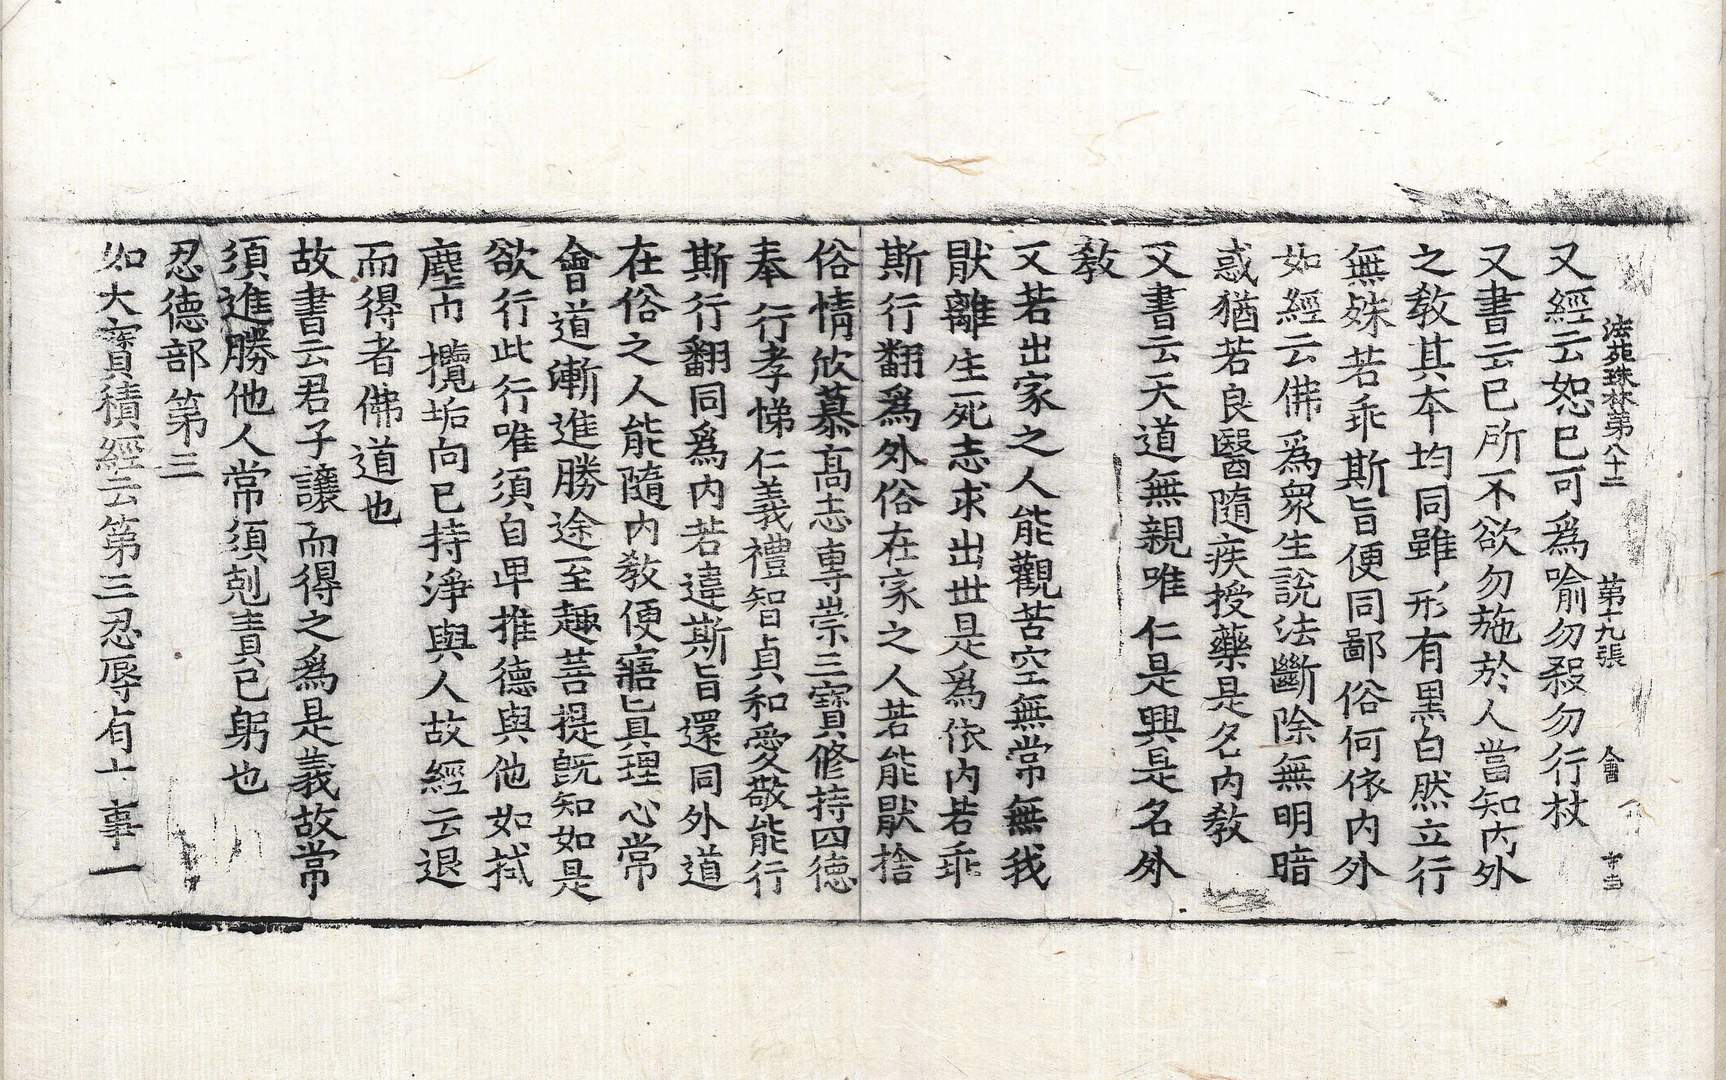 法苑珠林第八十二 第十九張 會
又經云恕已可爲喻勿殺勿行杖
又書云已所不欲勿施於人當知内外
之敎其本均同雖形有黑白然立行
無殊若乖斯旨便同鄙俗何依内外
如經云佛爲衆生說法斷除無明暗
惑猶若良醫隨疾授藥是名内敎
又書云天道無親唯仁是興是名外
敎
又若出家之人能觀苦空無常無我
猒離生死志求出世是爲依内若乖
斯行翻爲外俗在家之人若能猒捨
俗情欣慕髙志專崇三寶修持四德
奉行孝悌仁義禮智貞和愛敬能行
斯行翻同爲内若違斯旨還同外道
在俗之人能隨内敎便寤眞理心常
會道漸進勝途至趣菩提旣知如是
欲行此行唯須自卑推德與他如拭
塵巾攬垢向已持淨與人故經云退
而得者佛道也
故書云君子讓而得之爲是義故常
須進勝他人常須剋責已躬也
忍德部第三
如大寳積經云第三忍辱有十事一